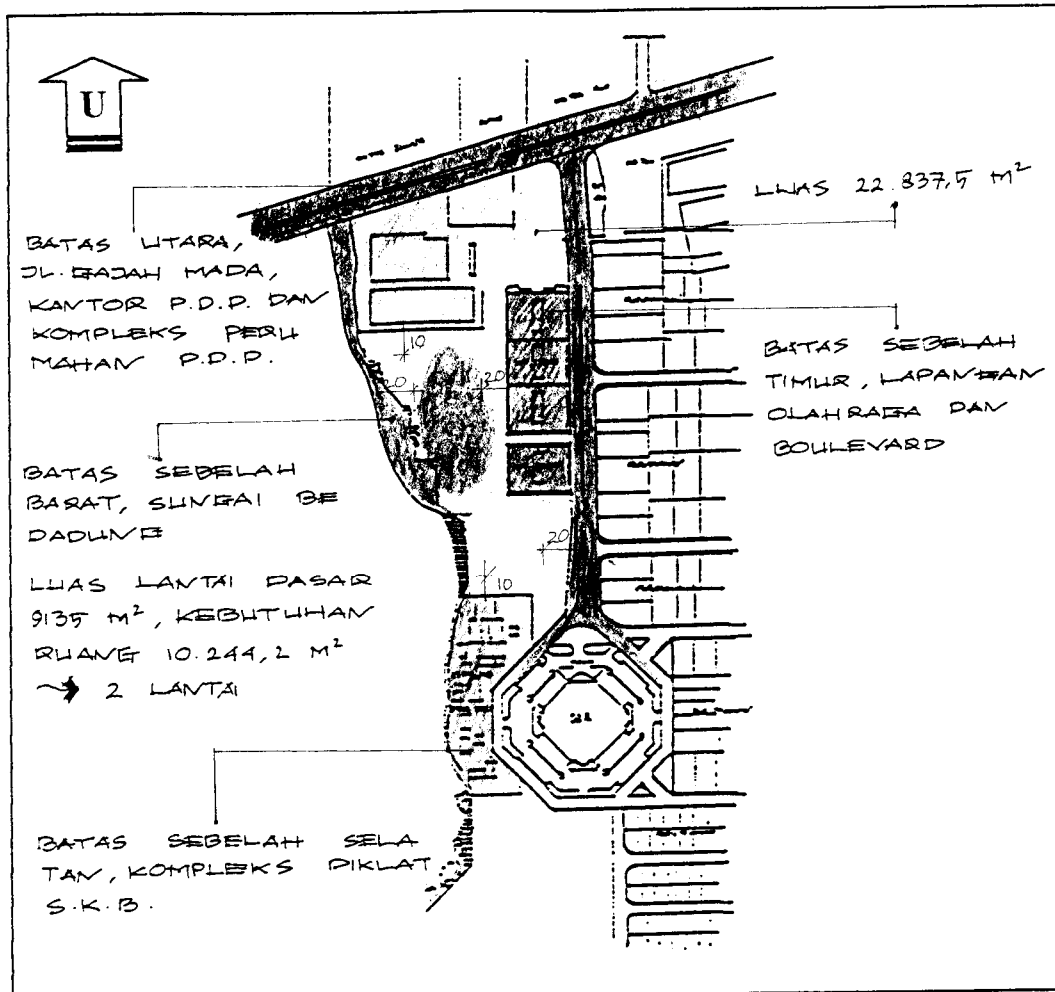 U
LUAS 22.837,5 M²
BATAS UTARA,
JL. GAJAH MADA,
KANTOR P.D.P. DAN
KOMPLEKS PERU
MAHAN P.D.P.
10
20
20
BATAS SEBELAH
TIMUR, LAPANGAN
OLAHRAGA DAN
BOULEVARD
BATAS SEBELAH
BARAT, SUNGAI BE
DADUNG
20
10
LUAS LANTAI DASAR
9135 M², KEBUTUHAN
RUANG 10.244,2 M²
2 LANTAI
BATAS SEBELAH SELA
TAN, KOMPLEKS DIKLAT
S.K.B.